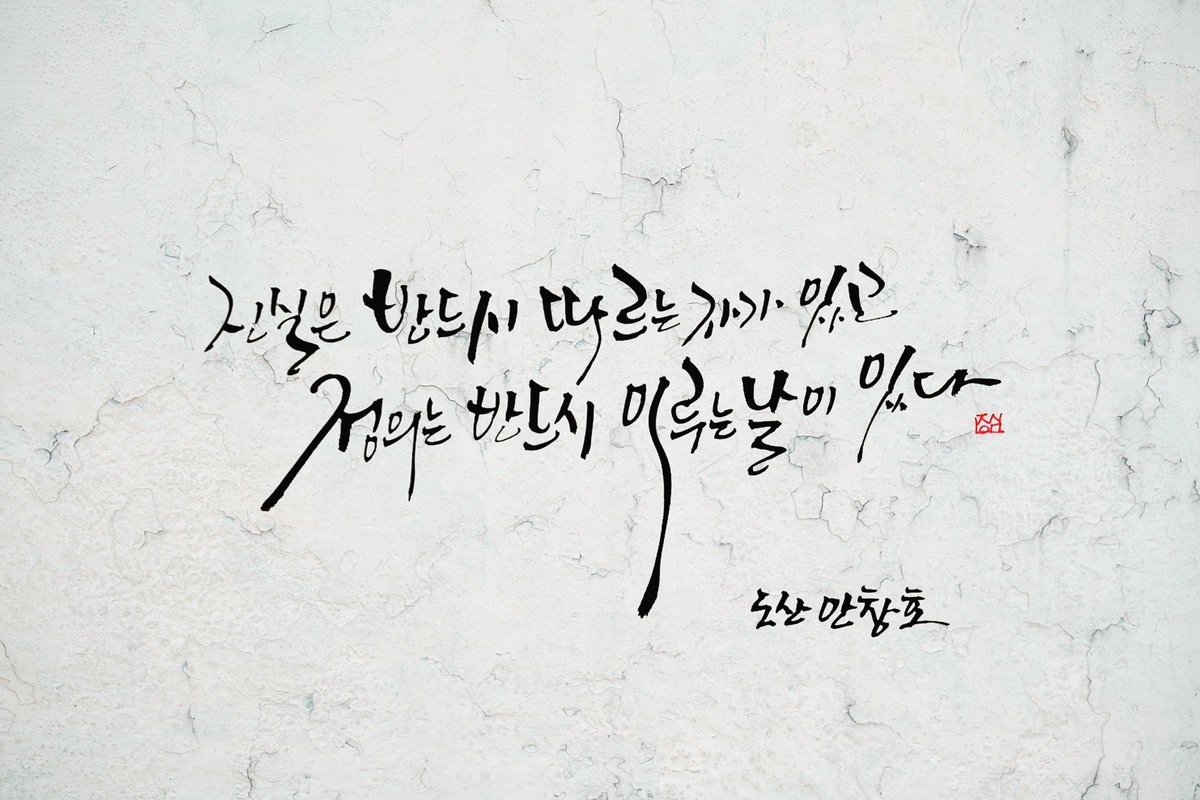 진실은 반드시 따르는 자가 있고
정의는 반드시 이루는 날이 있다
도산 안창호